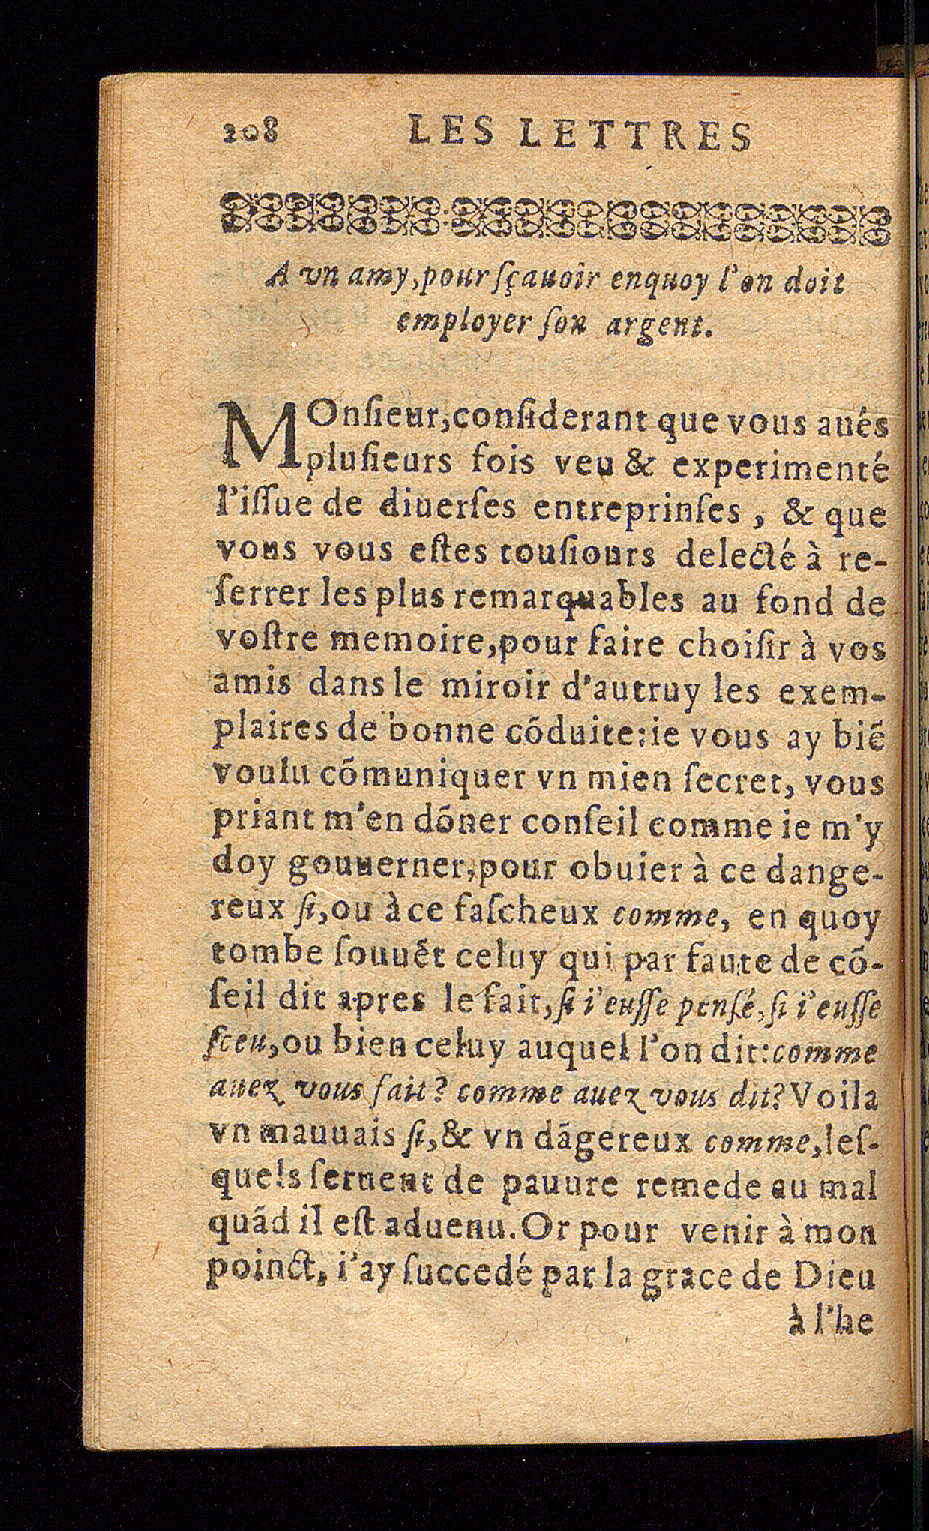 208 LES LETTRES
A vn amy, pour ſçauoir enquoy l'on doit
employer ſon argent.
MOnſieur, conſiderant que vous aués
pluſieurs fois veu & experimenté
l'iſſue de diuerſes entreprinſes, & que
vous vous eſtes touſiours delecté à re-
ſerrer les plus remarquables au fond de
voſtre memoire, pour faire choiſir à vos
amis dans le miroir d'autruy les exem-
plaires de bonne cõduite: ie vous ay biẽ
voulu cõmuniquer vn mien ſecret, vous
priant m'en dõner conſeil comme ie m'y
doy gouuerner, pour obuier à ce dange-
reux ſi, ou à ce faſcheux comme, en quoy
tombe ſouuẽt celuy qui par faute de cõ-
ſeil dit apres le fait, ſi i'euſſe penſé, ſi i'euſſe
ſceu, ou bien celuy auquel l'on dit: comme
auez vous fait? comme auez vous dit? Voila
vn mauuais ſi, & vn dãgereux comme, leſ-
quels ſeruent de pauure remede au mal
quãd il eſt aduenu. Or pour venir à mon
poinct, i'ay ſuccedé par la grace de Dieu
à l'he